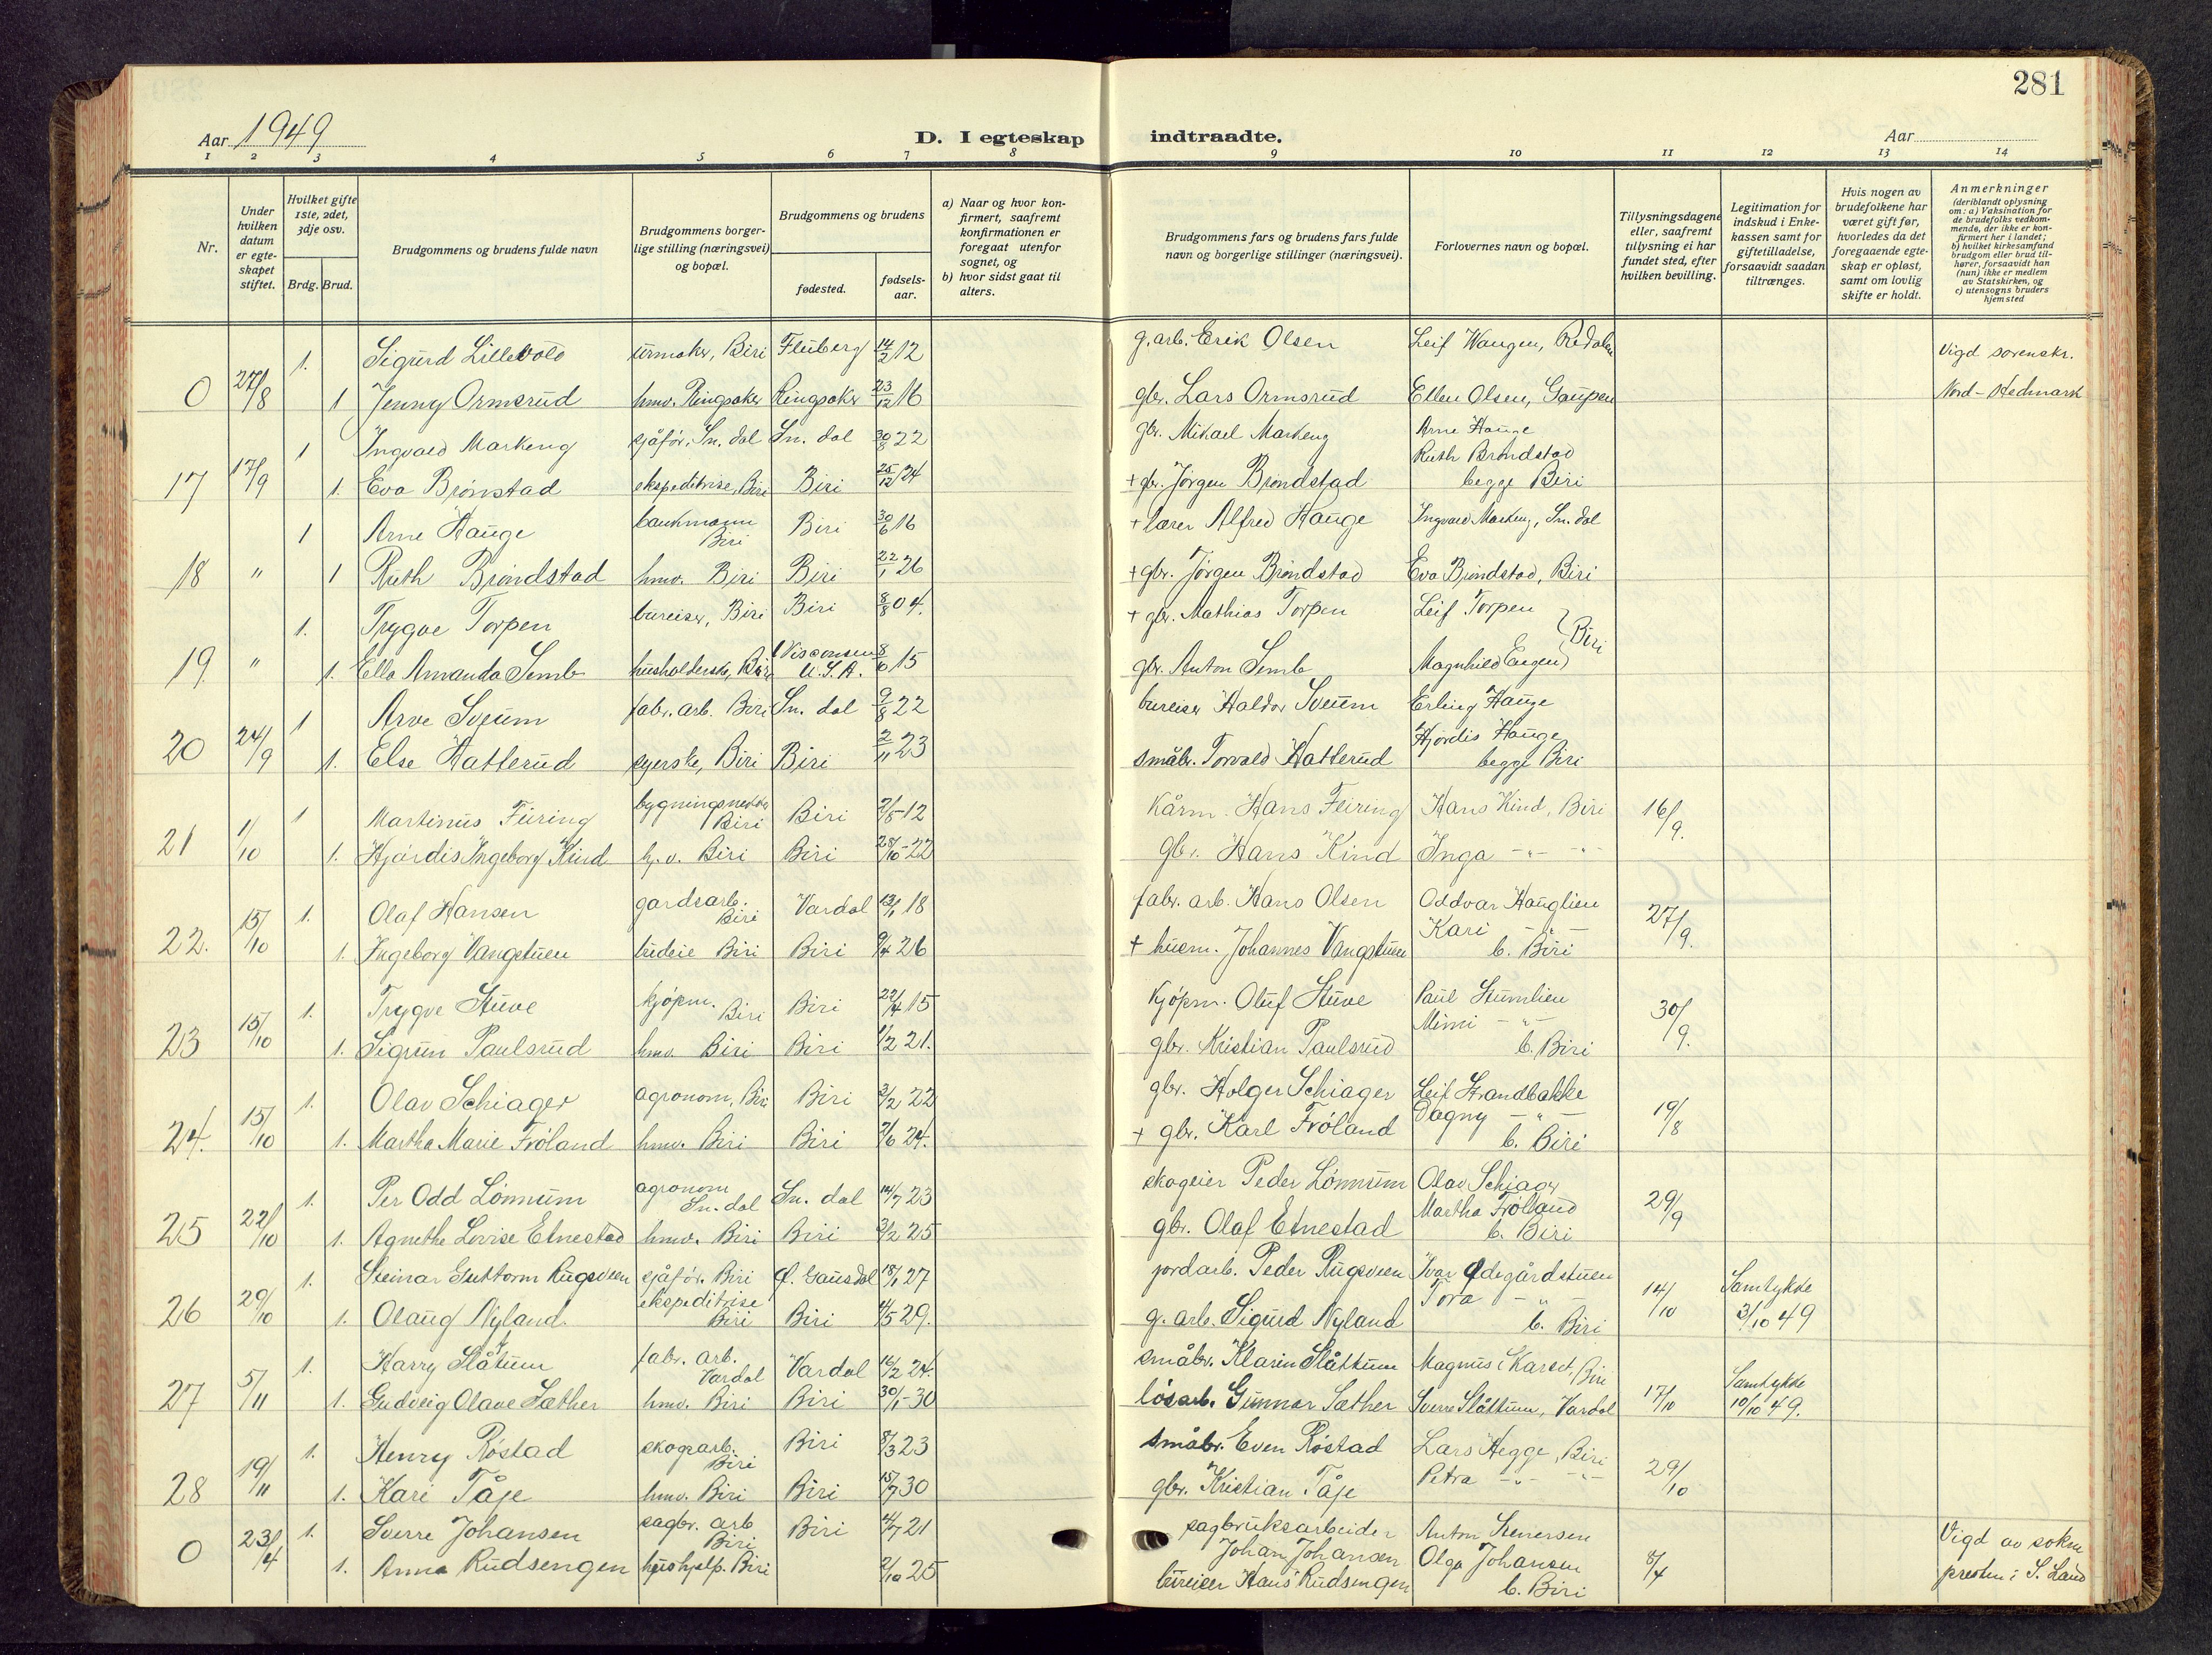 281
Aar 1949
D. I egteskap indtraadte.
Aar
1 2 3 4 5 6 7 8 9 10 11 12 13 14
Nr.
Under hvilken datum er egteskapet stiftet.
Hvilket gifte 1ste, 2det, 3dje osv.
Brdg. Brud.
Brudgommens og brudens fulde navn
Brudgommens borgerlige stilling (næringsvei) og bopæl.
Brudgommens og brudens
fødested. fødselsaar.
a) Naar og hvor konfirmert, saafremt konfirmationen er foregaat utenfor sognet, og
b) hvor sidst gaat til alters.
Brudgommens fars og brudens fars fulde navn og borgerlige stillinger (næringsvei).
Forlovernes navn og bopæl.
Tillysningsdagene eller, saafremt tillysning ei har fundet sted, efter hvilken bevilling.
Legitimation for indskud i Enkekassen samt for giftetilladelse, forsaavidt saadan tiltrænges.
Hvis nogen av brudefolkene har været gift før, hvorledes da det foregaaende egteskap er opløst, samt om lovlig skifte er holdt.
Anmerkninger (deriblandt oplysning om: a) Vaksination for de brudefolks vedkommende, der ikke er konfirmert her i landet; b) hvilket kirkesamfund brudgom eller brud tilhører, forsaavidt han (hun) ikke er medlem av Statskirken, og c) utensogns bruders hjemsted
1. Sigurd Lillevold urmaker, Biri Fluberg 14/2 12 g.arb. Erik Olsen Leif Wangen, Redalen Vigd sorenskr.
0 27/8 1 Jenny Ormsrud hmv. Ringsaker Ringsaker 23/12 16 gbr. Lars Ormsrud Ellen Olsen, Gaupen Nord-Hedmark
1 Ingvald Markeng sjåfør, Sn. dal Sn. dal 30/8 22 gbr. Mikael Markeng Arne Hauge
Ruth Brøndstad
17 17/9 1. Eva Brønstad ekspeditrise, Biri Biri 25/12 24 + gbr. Jørgen Brøndstad begge Biri
1 Arne Hauge bankmann Biri Biri 30/6 16 + lærer Alfred Hauge Ingvald Markeng, Sn. dal
18 " 1 Ruth Brøndstad hmv. Biri Biri 22/1 26 + gbr. Jørgen Brøndstad Eva Brøndstad, Biri
1. Trygve Torpen bureiser, Biri Biri 8/8 04. + gbr. Mathias Torpen Leif Torpen } Biri
19 " 1. Ella Amanda Semb husholderske, Biri Visconsen U.S.A. 8/6 15 gbr. Anton Semb Magnhild Engen
1 Arve Sveum fabr. arb. Biri Sn. dal 9/8 22 bureiser Haldor Sveum Erling Hauge
Hjørdis Hauge
20 24/9 1. Else Hatterud syerske, Biri Biri 2/11 23 småbr. Torvald Hatterud begge Biri
1 Martinus Feiring bygningsnekker Biri Biri 2/5-12 Kårm. Hans Feiring Hans Kind, Biri 16/9.
21 1/10 1. Hjørdis Ingeborg Kind h.v. Biri Biri 28/10-22 gbr. Hans Kind Inga -"- -"-
1. Olaf Hansen gardsarb. Biri Vardal 13/1 18 fabr. arb. Hans Olsen Oddvar Hauglien 27/9.
Kari -"-
22. 15/10 1. Ingeborg Vangstuen budeie Biri Biri 9/4 26 + husm. Johannes Vangstuen b. Biri
1. Trygve Stuve kjøpm. Biri Biri 22/4 15 Kjøpm. Oluf Stuve Paul Stumlien 30/9.
Mimi -"-
23 15/10 1. Sigrun Paulsrud hmv. Biri Biri 1/2 21. gbr. Kristian Paulsrud b. Biri
1. Olav Schiager agronom, Biri Biri 3/2 22 gbr. Holger Schiager Leif Strandbakke 19/8
Dagny -"-
24. 15/10 1. Martha Marie Frøland hmv. Biri Biri 7/6 24. + gbr. Karl Frøland b. Biri
1. Per Odd Lønnum agronom Sn. dal Sn. dal 14/7 23 skogeier Peder Lønnum Olav Schiager 29/9
Martha Frøland
25 22/10 1. Agnethe Lovise Etnestad hmv. Biri Biri 3/2 25 gbr. Olaf Etnestad b. Biri
1. Steinar Guttorm Rugsveen sjåfør. Biri Ø. Gausdal 18/1 27 jordarb. Peder Rugsveen Ivar Ødegårdstuen 14/10 Samtykke
Tora -"-
26 29/10 1. Olaug Nyland. ekspeditrise Biri Biri 4/5 29. g. arb. Sigurd Nyland b. Biri 3/10 49
1. Harry Slåttum fabr. arb. Vardal Vardal 16/2 24. småbr. Klarin Slåttum Magnus Karset, Biri Samtykke
27 5/11 1. Gudveig Olave Sæther hmv. Biri Biri 30/1-30 løsarb. Gunnar Sæther Sverre Slåttum, Vardal 17/10 10/10 49.
1. Henry Røstad skogsarb. Biri Biri 8/3 23 småbr. Even Røstad Lars Hegge, Biri 29/10
28 19/11 1. Kari Tåje hmv. Biri Biri 15/7 30 gbr. Kristian Tåje Petra -"- -"-
1. Sverre Johansen sagbr. arb Biri Biri 4/7 21 sagbruksarbeider Johan Johansen Anton Stenersen 8/4 Vigd av sokne
0 23/4 1. Anna Rudsengen hushjelp. Biri 2/10 25 bureiser Hans Rudsengen Olga Johansen b. Biri presten i S. Land